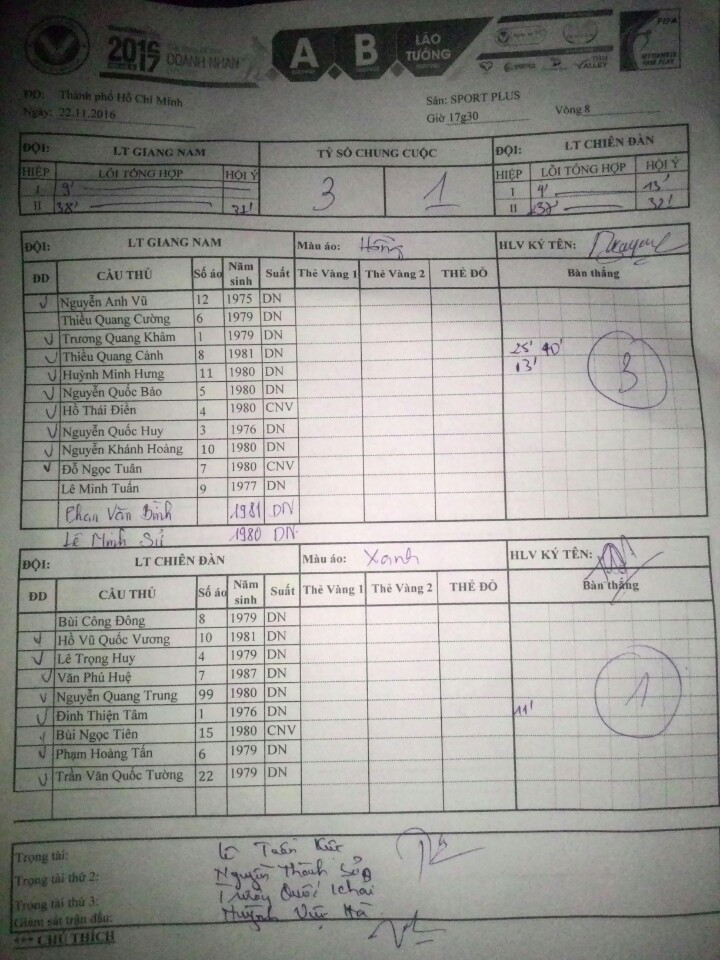 2016
2017
DOANH NHÂN
A
B
LÃO TƯỚNG
FIFA
ĐĐ: Thành phố Hồ Chí Minh Sân: SPORT PLUS
Ngày: 22.11.2016 Giờ 17g30 Vòng 8
ĐỘI: LT GIANG NAM TỶ SỐ CHUNG CUỘC ĐỘI: LT CHIÊN ĐÀN
HIỆP LỖI TỔNG HỢP HỘI Ý 3 1 HIỆP LỖI TỔNG HỢP HỘI Ý
I 9' I 4' 13'
II 38' 31' II 37' 32'
ĐỘI: LT GIANG NAM Màu áo: Hồng HLV KÝ TÊN:
ĐD CẦU THỦ Số áo Năm sinh Suất Thẻ Vàng 1 Thẻ Vàng 2 THẺ ĐỎ Bàn thắng
Nguyễn Anh Vũ 12 1975 DN
Thiều Quang Cường 6 1979 DN
Trương Quang Khâm 1 1979 DN
Thiều Quang Cảnh 8 1981 DN 25' 40'
Huỳnh Minh Hưng 11 1980 DN 13' 3
Nguyễn Quốc Bảo 5 1980 DN
Hồ Thái Điền 4 1980 CNV
Nguyễn Quốc Huy 3 1976 DN
Nguyễn Khánh Hoàng 10 1980 DN
Đỗ Ngọc Tuân 7 1980 CNV
Lê Minh Tuấn 9 1977 DN
Phan Văn Bình 1981 DN
Lê Minh Sử 1980 DN
ĐỘI: LT CHIÊN ĐÀN Màu áo: Xanh HLV KÝ TÊN:
ĐD CẦU THỦ Số áo Năm sinh Suất Thẻ Vàng 1 Thẻ Vàng 2 THẺ ĐỎ Bàn thắng
Bùi Công Đông 8 1979 DN
Hồ Vũ Quốc Vương 10 1981 DN
Lê Trọng Huy 4 1979 DN
Văn Phú Huệ 7 1987 DN
Nguyễn Quang Trung 99 1980 DN 1
Đinh Thiện Tâm 1 1976 DN 11'
Bùi Ngọc Tiên 15 1980 CNV
Phạm Hoàng Tấn 6 1979 DN
Trần Văn Quốc Tường 22 1979 DN
Trọng tài: Lê Tuấn
Trọng tài thứ 2: Nguyễn Thành
Trọng tài thứ 3: Quốc Khai
Giám sát trận đấu: Huỳnh Hà
*** CHÚ THÍCH